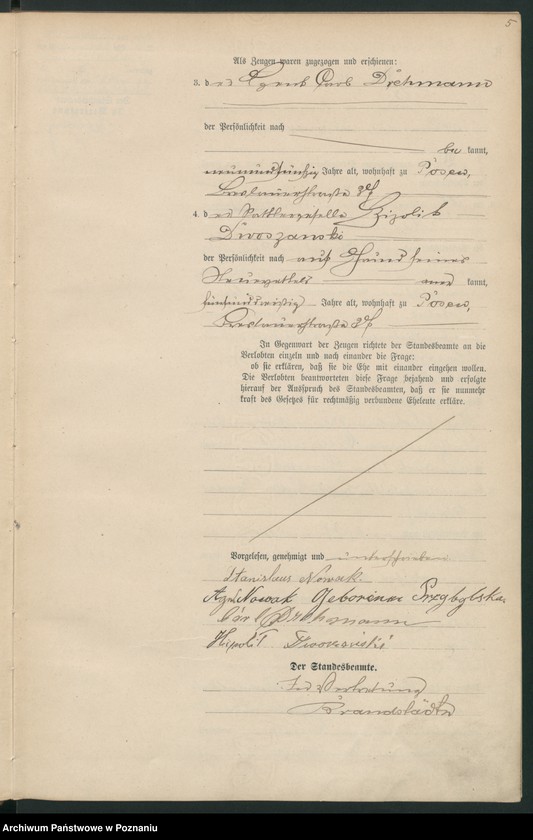 5
Als Zeugen waren zugezogen und erschienen:
3. der Agent Carl Drehmann
der Persönlichkeit nach
be kannt,
neunundfünfzig Jahre alt, wohnhaft zu Posen,
Breslauerstraße
4. der Sattlergeselle Hipolit
Dwoszanski
der Persönlichkeit nach auf Grund seines
Steuerzettels aner kannt,
fünfunddreißig Jahre alt, wohnhaft zu Posen,
Breslauerstraße
In Gegenwart der Zeugen richtete der Standesbeamte an die
Verlobten einzeln und nach einander die Frage:
ob sie erklären, daß sie die Ehe mit einander eingehen wollen.
Die Verlobten beantworteten diese Frage bejahend und erfolgte
hierauf der Ausspruch des Standesbeamten, daß er sie nunmehr
kraft des Gesetzes für rechtmäßig verbundene Eheleute erkläre.
Vorgelesen, genehmigt und unterschrieben
Stanislaus Nowak
Nowak Geborene Przybylska
Carl Drehmann
Hipolit
Der Standesbeamte.
In Vertretung
Brandstädter
Archiwum Państwowe w Poznaniu